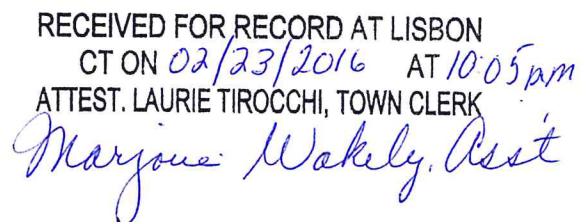 RECEIVED FOR RECORD AT LISBON
CT ON 02/23/2016 AT 10:05 pm
ATTEST. LAURIE TIROCCHI, TOWN CLERK
Marjorie Wakely, Asst